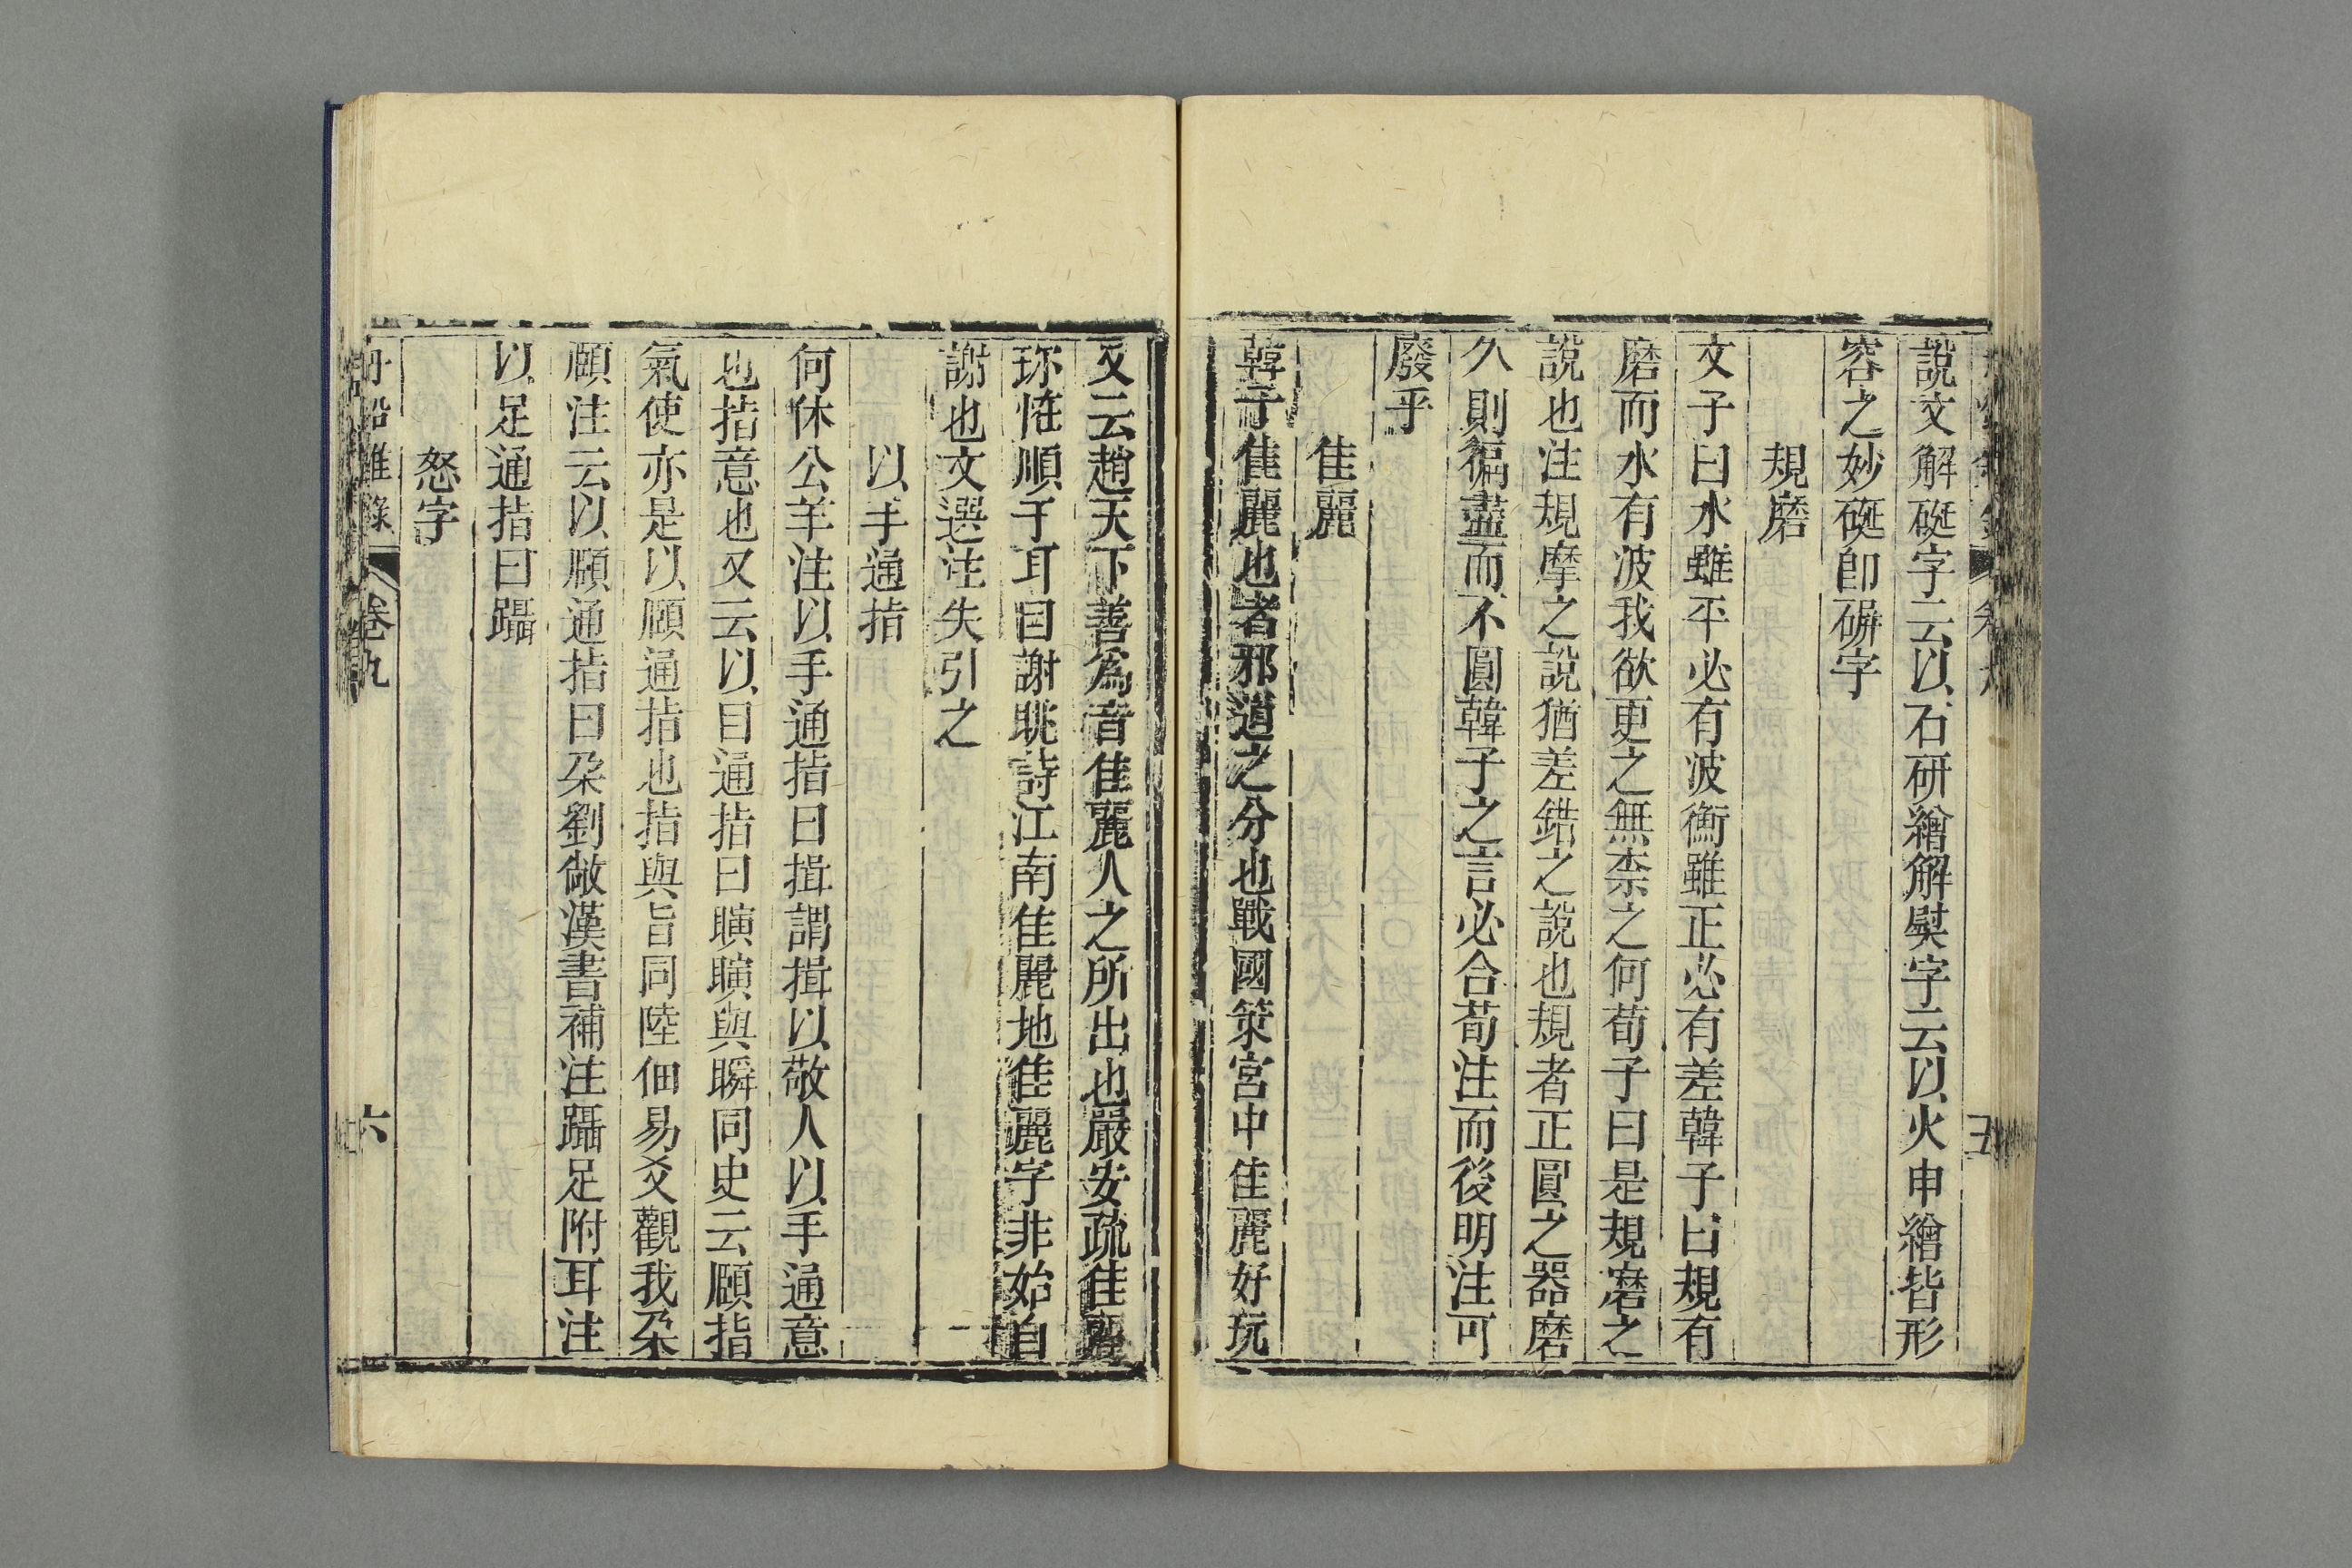 說文解硟字云以石研繒解㷉字云以火申繒皆形
容之妙硟卽硏字
規磨
文子曰水雖平必有波衡雖正必有差韓子曰規有
磨而水有波我欲更之無柰之何荀子曰是規磨之
說也注規摩之說猶差錯之說也規者正圓之器磨
久則徧盡而不圓韓子之言必合荀注而後明注可
廢乎
佳麗
韓子佳麗也者邪道之分也戰國策宮中佳麗好玩
又云趙天下善爲音佳麗人之所出也嚴安疏佳麗
珎恠順于耳目謝眺詩江南佳麗地佳麗字非始自
謝也文選注失引之
以手通指
何休公羊注以手通指曰揖謂揖以敬人以手通意
也指意也又云以目通指曰瞚瞚與瞬同史云頤指
氣使亦是以頤通指也指與旨同陸佃易爻觀我朶
頤注云以頤通指曰朶劉敞漢書補注躡足附耳注
以足通指曰躡
怒字
丹鉛雜錄
卷九
六